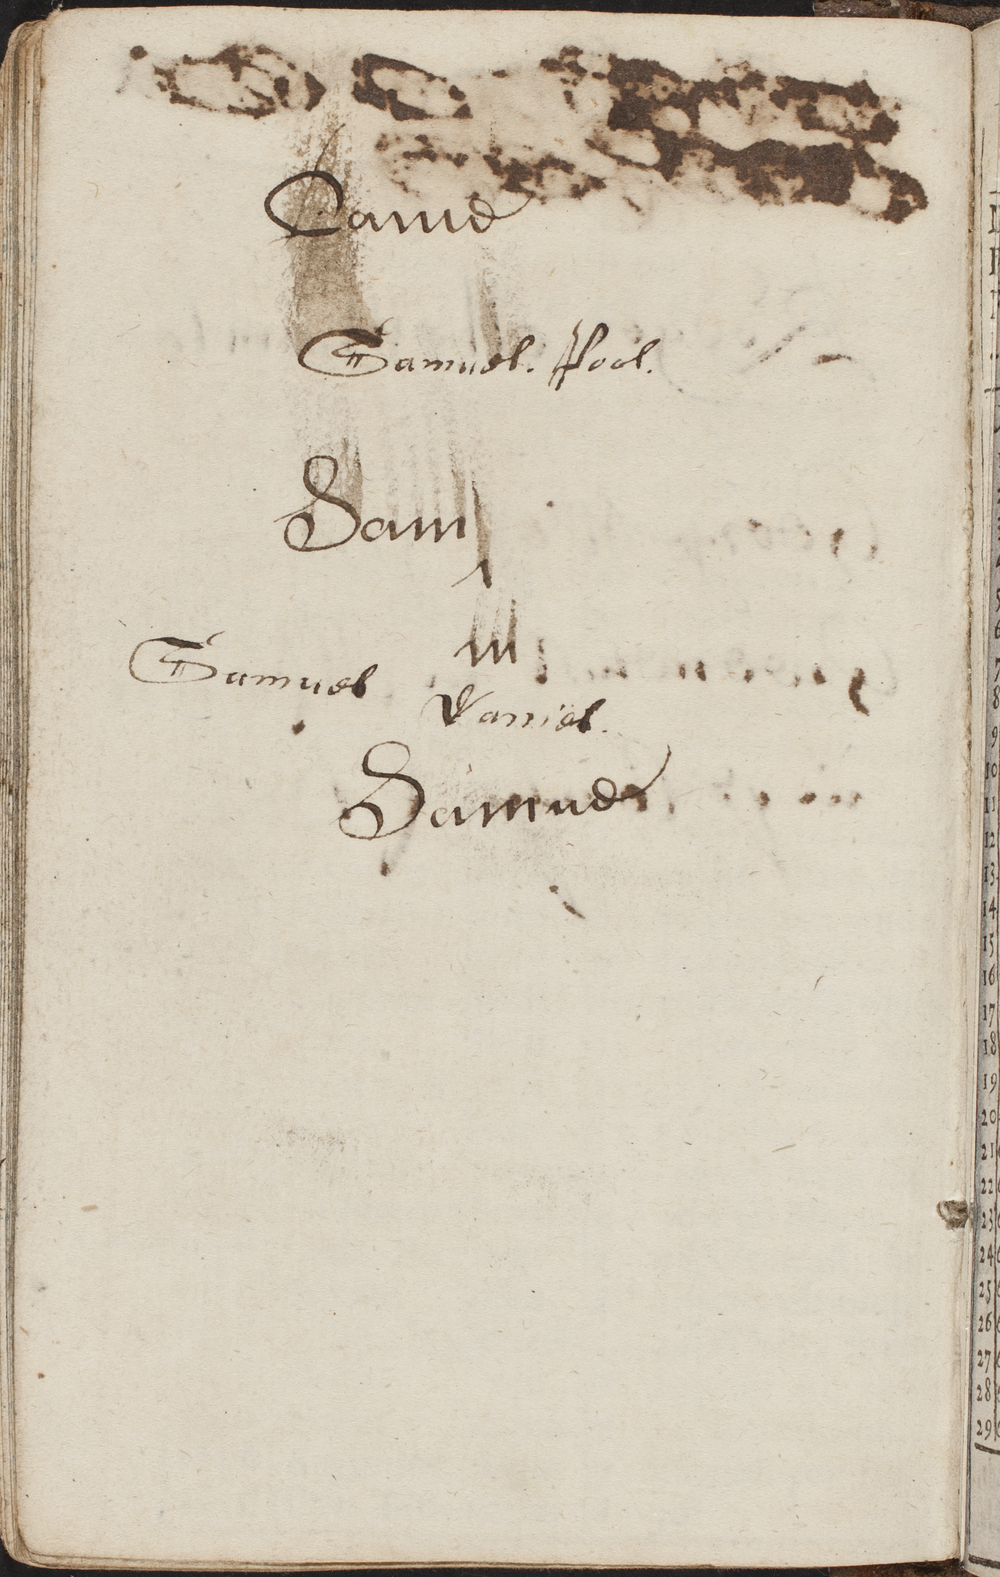 Samuel. Pool.
Sam
m
Samuel
Daniel.
Samuel
6
7
8
9
10
11
12
13
14
15
16
17
18
19
20
21
22
23
24
25
26
27
28
29